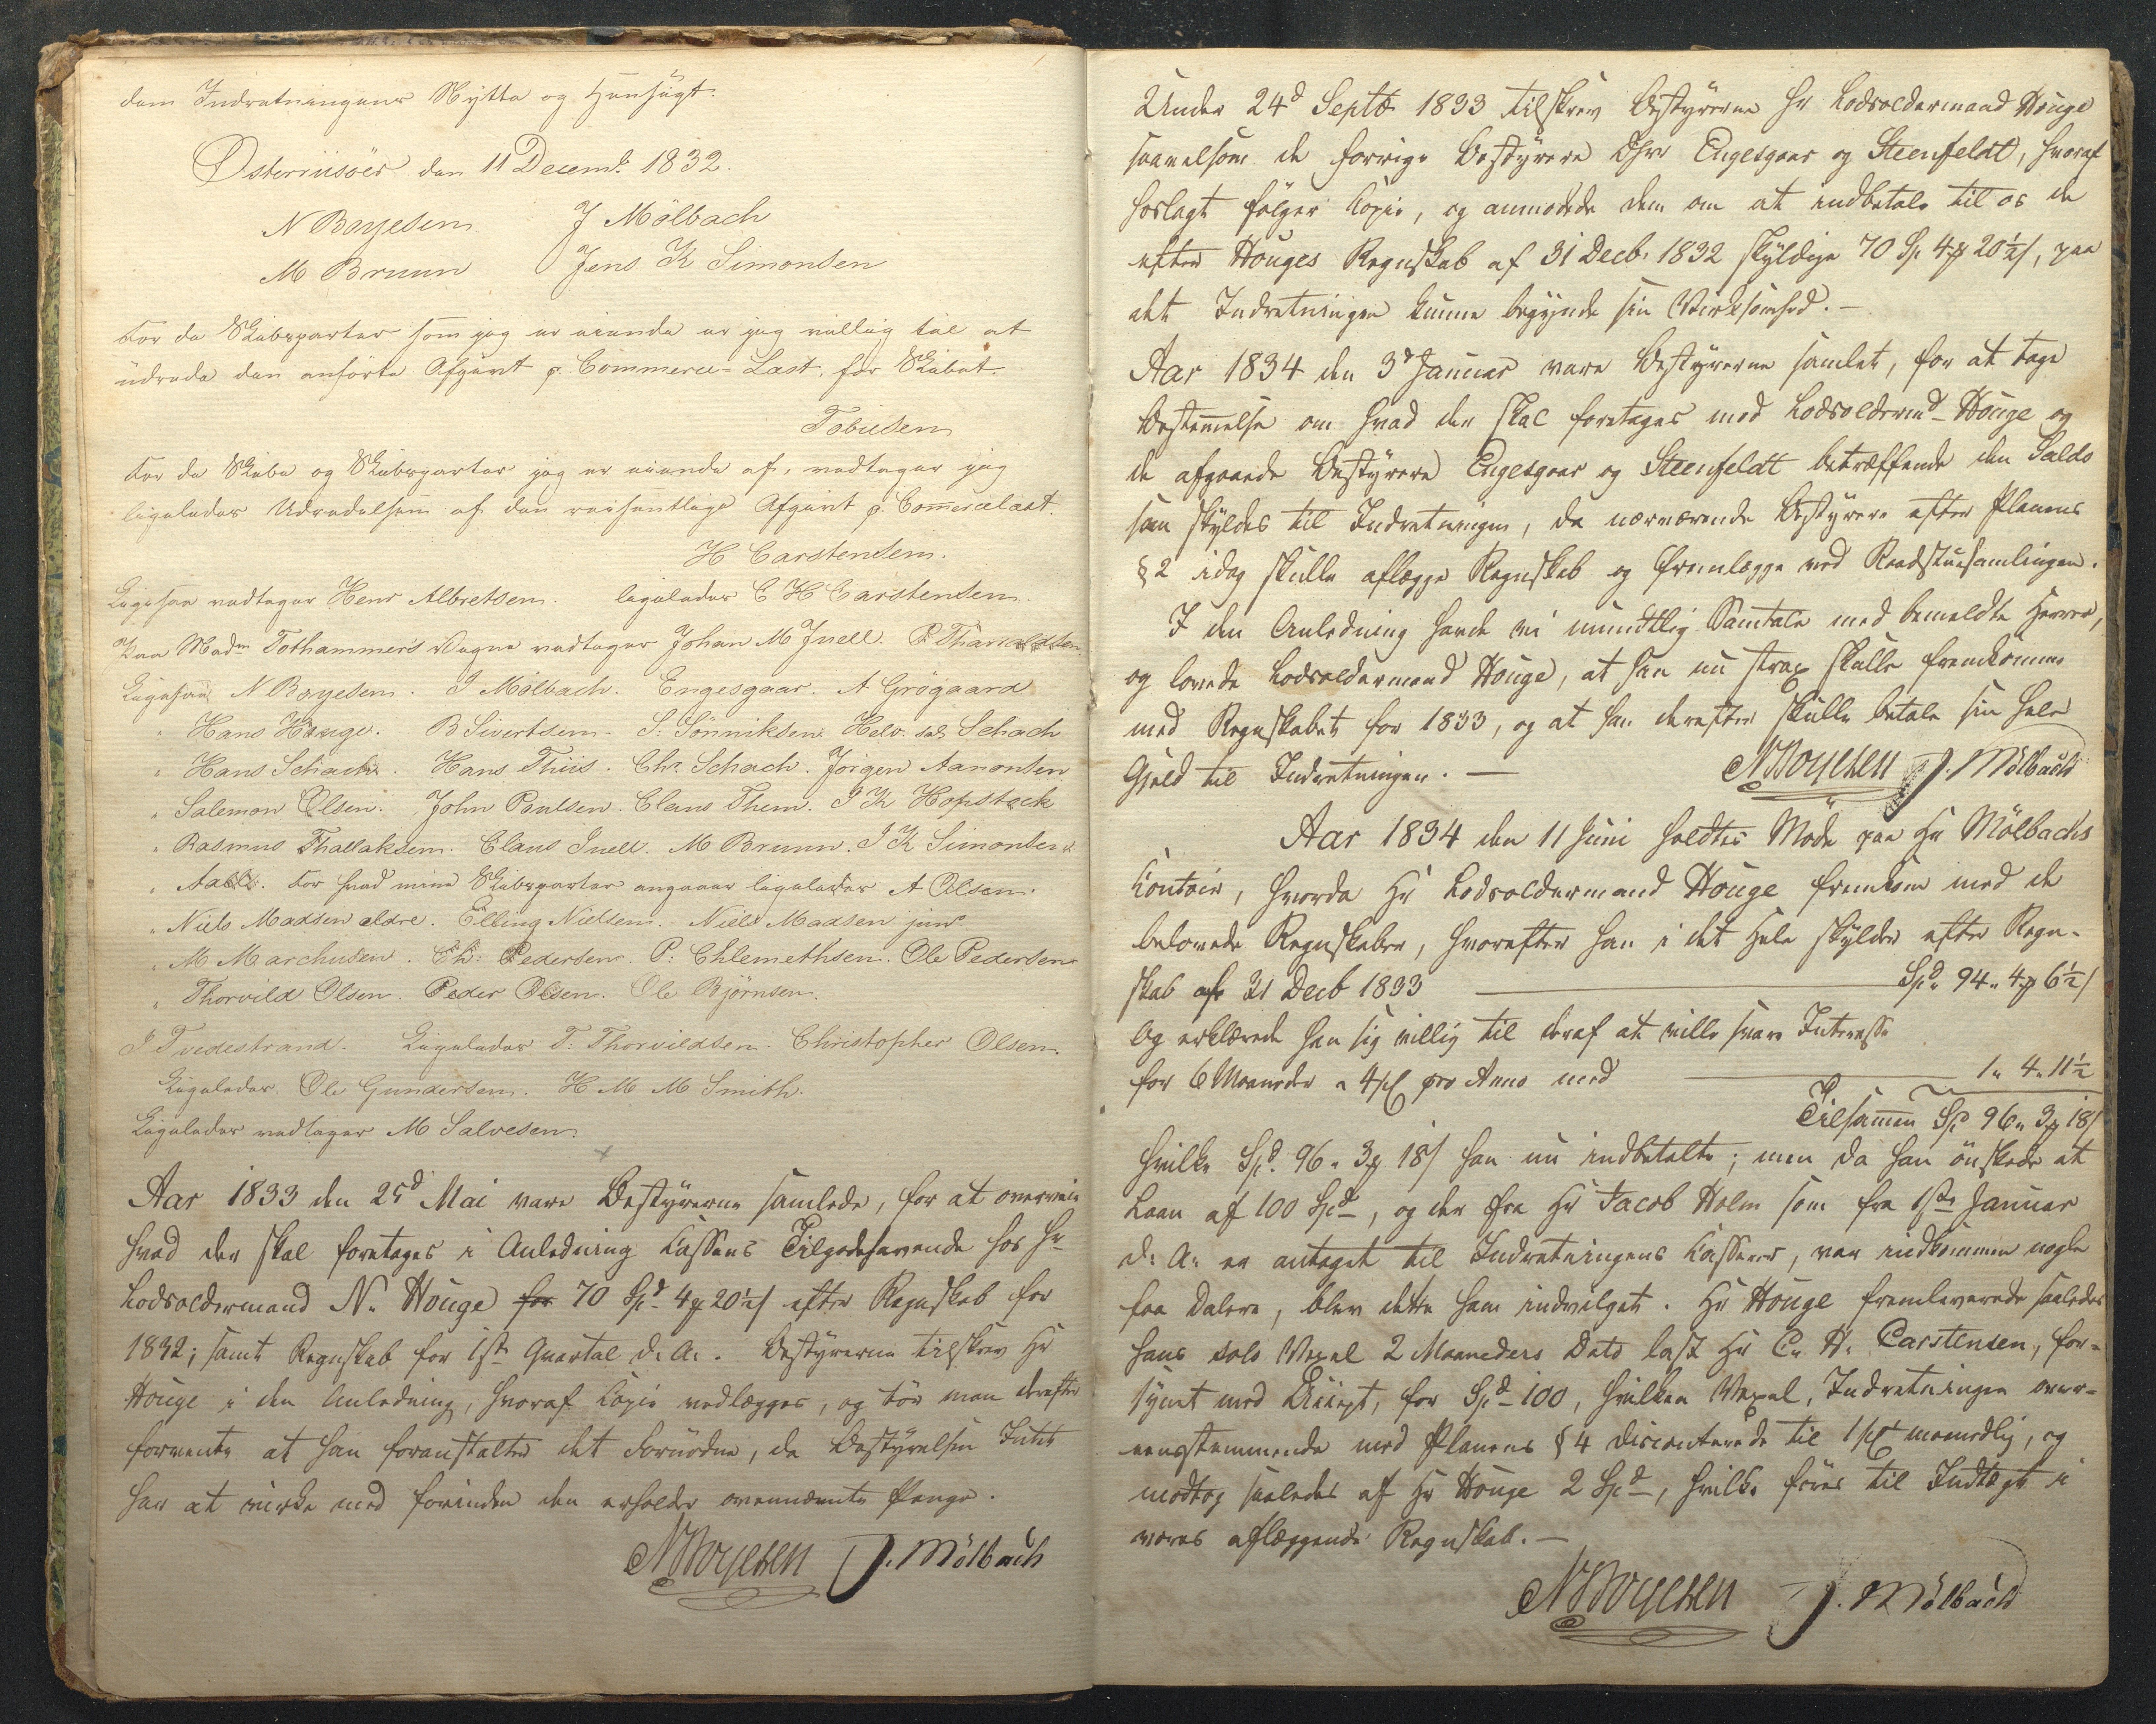 dem Indretningens Nytte og Hensigt.
Østerriisöer den 11 Decemb. 1832.
N Boyesen J Mölbach
M Bruun Jens K Simonsen
For de Skibsparter som jeg er eiende er jeg villig til at
udrede den anförte Afgivt p. Commerce-Læst, for Skibet
Tobiesen
For de Skibe og Skibsparter jeg er eiende af, vedtager jeg
ligeledes Udredelsen af den Afgivt p. Commercelæst.
H Carstensen.
Ligesaa vedtager Henr Albretsen. ligeledes C H Carstensen.
Paa Madm Tothammer's Vegne vedtager Johan M Juell. P. Thorvaldsen
Ligesaa N Boyesen. J Mölbach. Engesgaar. A Grögaard
" Hans Houge. B Sivertsen. S. Sönniksen. Helv. sal Schach
" Hans Schach. Hans Thiis. Chr. Schach. Jörgen Aanonsen
" Salemon Olsen. John Poulsen. Claus Them. J K Hopstock
" Rasmus Thallaksen. Claus Juell. M Bruun. J K Simonsen
" Aall. For hvad mine Skibsparter angaaer ligeledes A Olsen.
" Niels Madsen eldre. Elling Nielsen. Niels Madsen jun
" M Marchusen. Ch: Pedersen. P: Chlemethsen. Ole Pedersen
" Thorvild Olsen. Peder Olsen. Ole Björnsen.
J Tvedestrand. Ligeledes T: Thorvildsen. Christopher Olsen.
Ligeledes Ole Gundersen. H M M Smith.
Ligeledes vedtager M Salvesen.
Aar 1833 den 25d Mai vare Bestyrerne samlede, for at overveie
hvad der skal foretages i Anledning Cassens Tilgodehavende hos Hr
Lodsoldermand N. Houge for 70 Spd 4 20½ efter Regnskab for
1832; samt Regnskab for 1ste Quartal d. A. Bestyrerne tilskrev Hr
Houge i den Anledning, hvoraf Copie vedlægges, og bör man derefter
forvente at han foranstalter det Fornödne, da Bestyrelsen Intet
har at virke med forinden den erholder ovennævnte Penge.
N Boyesen J. Mölbach
Under 24d Septb 1833 tilskrev Bestyrerne Hr Lodsoldermand Houge
saavelsom de forrige Bestyrere Dhrr Engesgaar og Steenfeldt, hvoraf
hoslagt fölger Copie, og anmodede dem om at indbetale til os de
efter Houges Regnskab af 31 Decb. 1832 skyldige 70 Sp. 4 20½, paa
det Indretningen kunne begynde sin Virksomhed.—
Aar 1834 den 3d Januar vare Bestyrerne samlet, for at tage
Bestemmelse om hvad der skal foretages med Lodsoldermd Houge og
de afgaaede Bestyrere Engesgaar og Steenfeldt betræffende den Saldo
som skyldes til Indretningen, da nærværende Bestyrere efter Planens
§ 2 idag skulle aflægge Regnskab og fremlægge ved Raadstuesamlingen.
I den Anledning havde vi mundtlig Samtale med bemeldte Herrer,
og lovede Lodsoldermand Houge, at han nu strax skulle fremkomme
med Regnskabet for 1833, og at han derefter skulle betale sin hele
Gjeld til Indretningen.— N Boyesen J. Mölbach
Aar 1834 den 11 Juni holdtes Möde paa Hr Mölbachs
Contoir, hvorda Hr Lodsoldermand Houge fremkom med de
belovede Regnskaber, hvorefter han i det Hele skylder efter Regn-
skab af 31 Decb 1833 Spd. 94. 4 6½
Og erklærede han sig villig til deraf at ville svare Interesse
for 6 Maaneder a 4 pC pro Anno med 1. 4. 11½
Tilsammen Spd 96. 3 18
Hvilke Spd. 96. 3 18 han nu indbetalte; men da han önskede et
Laan af 100 Spd, og der fra Hr Jacob Holm som fra 1ste Januar
d. A. er antaget til Indretningens Casserer, var indkommen nogle
faa Dalere, blev dette ham indvilget. Hr Houge fremleverede saaledes
hans solo Vexel 2 Maaneders Dato last Hr C. H. Carstensen, for-
synet med Accept, for Spd 100, hvilken Vexel, Indretningen over-
eensstemmende med Planens § 4 discounterede til 1 pCt maanedlig, og
modtog saaledes af Hr Houge 2 Spd, hvilke föres til Indtægt i
vores aflæggende Regnskab.—
N Boyesen J. Mölbach